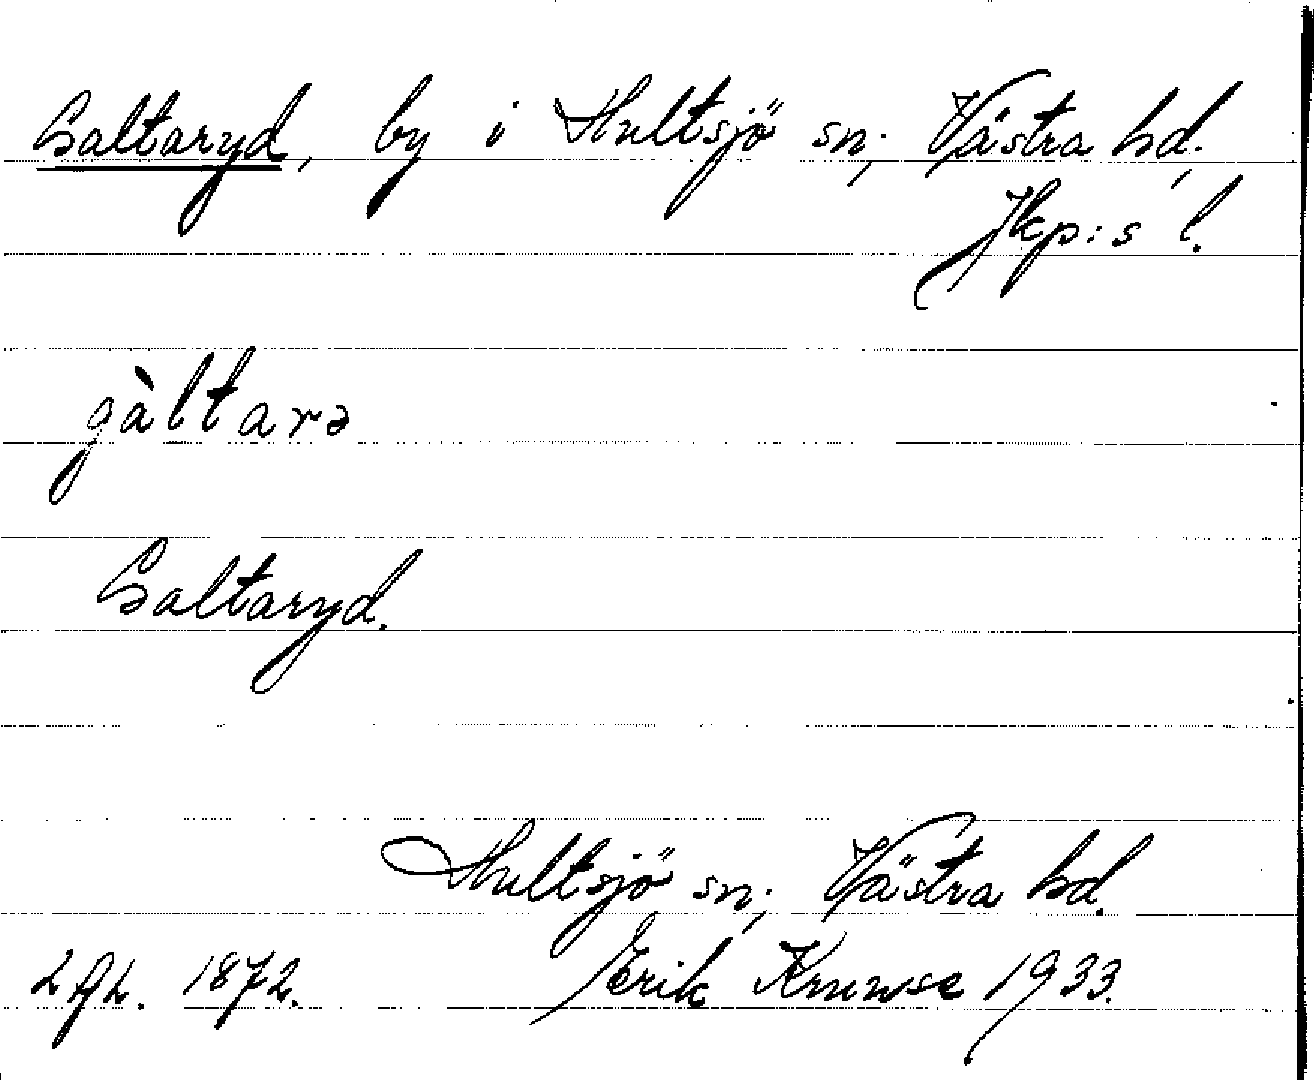 Galtaryd, by i Hultsjö sn, Västra hd,
Jkp:s l.
gàltarə
Galtaryd.
Hultsjö sn, Västra hd.
1872. Erik Kruuse 1933.